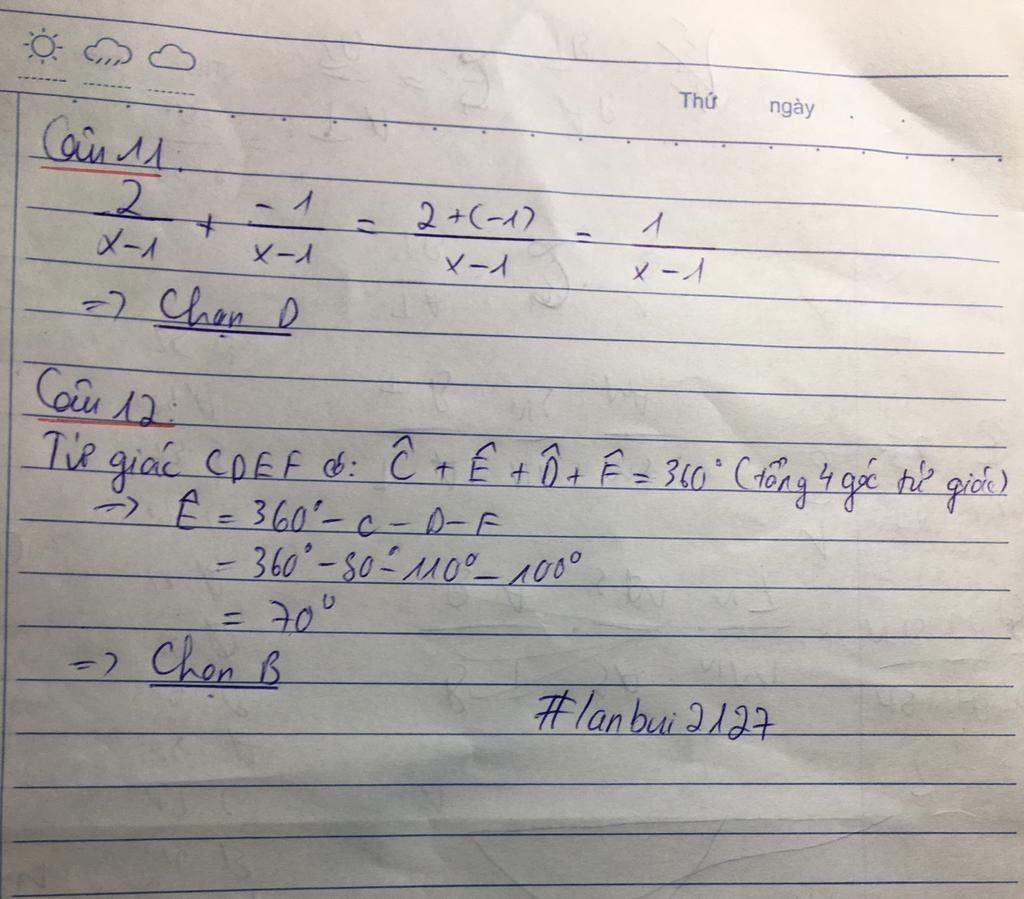 Thứ ngày
Câu 11:
2/(x-1) + -1/(x-1) = 2+(-1)/(x-1) = 1/(x-1)
=> Chọn D
Câu 12:
Tứ giác CDEF có: Ĉ + Ê + D̂ + F̂ = 360° (tổng 4 góc tứ giác)
=> Ê = 360° - C - D - F
= 360° - 80° - 110° - 100°
= 70°
=> Chọn B
#lanbui2127